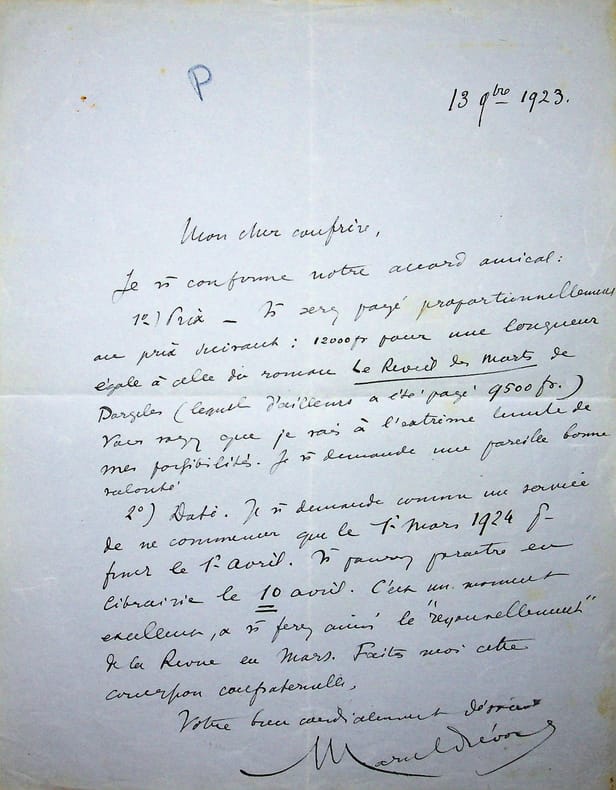 P
13 9bre 1923.
Mon cher confrère,
Je vs confirme notre accord amical :
1o) Prix — Vs serez payé proportionnellement
au prix suivant : 12000 fr pour une longueur
égale à celle du roman Le Réveil des Morts de
Dorgelès (lequel d'ailleurs a été payé 9500 fr.)
Vous voyez que je vais à l'extrême limite de
mes possibilités. Je vs demande une pareille bonne
volonté
2o) Date. Je vs demande comme un service
de ne commencer que le 1er Mars 1924 pr
finir le 1er avril. Vs pourrez paraître en
librairie le 10 avril. C'est un moment
excellent, & vs ferez ainsi le "renouvellement"
de la Revue en Mars. Faites moi cette
concession confraternelle.
Votre bien cordialement dévoué
Marcel Prévost